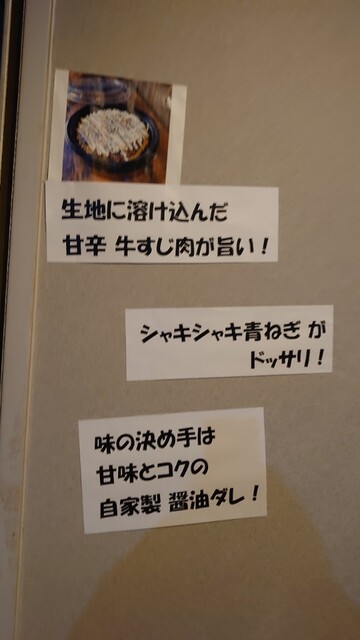 生地に溶け込んだ
甘辛 牛すじ肉が旨い！
シャキシャキ青ねぎ が
ドッサリ！
味の決め手は
甘味とコクの
自家製 醤油ダレ！